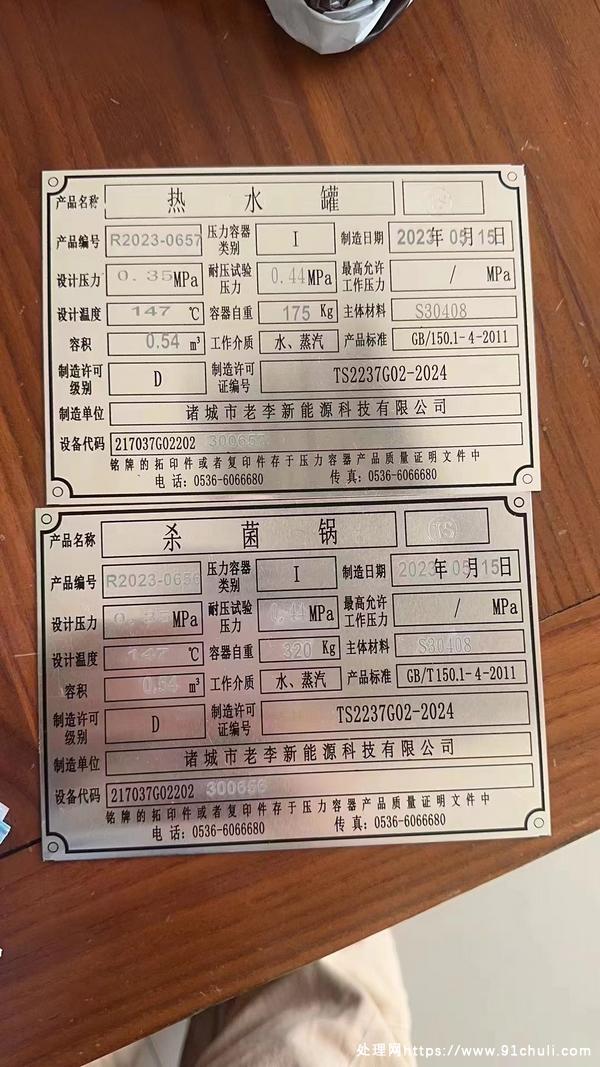 产品名称 热水罐 TS
产品编号 R2023-0657 压力容器类别 I 制造日期 2023年05月15日
设计压力 0.35MPa 耐压试验压力 0.44MPa 最高允许工作压力 / MPa
设计温度 147 ℃ 容器自重 175 Kg 主体材料 S30408
容积 0.54 m³ 工作介质 水、蒸汽 产品标准 GB/150.1-4-2011
制造许可级别 D 制造许可证编号 TS2237G02-2024
制造单位 诸城市老李新能源科技有限公司
设备代码 217037G02202 300657
铭牌的拓印件或者复印件存于压力容器产品质量证明文件中
电话: 0536-6066680 传真: 0536-6066680
产品名称 杀菌锅 TS
产品编号 R2023-0656 压力容器类别 I 制造日期 2023年05月15日
设计压力 0.35 MPa 耐压试验压力 0.44 MPa 最高允许工作压力 / MPa
设计温度 147 ℃ 容器自重 320 Kg 主体材料 S30408
容积 0.54 m³ 工作介质 水、蒸汽 产品标准 GB/T150.1-4-2011
制造许可级别 D 制造许可证编号 TS2237G02-2024
制造单位 诸城市老李新能源科技有限公司
设备代码 217037G02202 300656
铭牌的拓印件或者复印件存于压力容器产品质量证明文件中
电话: 0536-6066680 传真: 0536-6066680
处理网https://www.91chuli.com